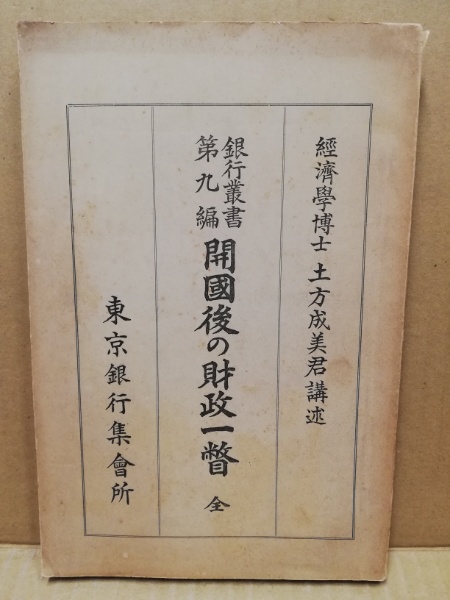 經濟學博士 土方成美君講述
銀行叢書
第九編
開國後の財政一瞥 全
東京銀行集會所